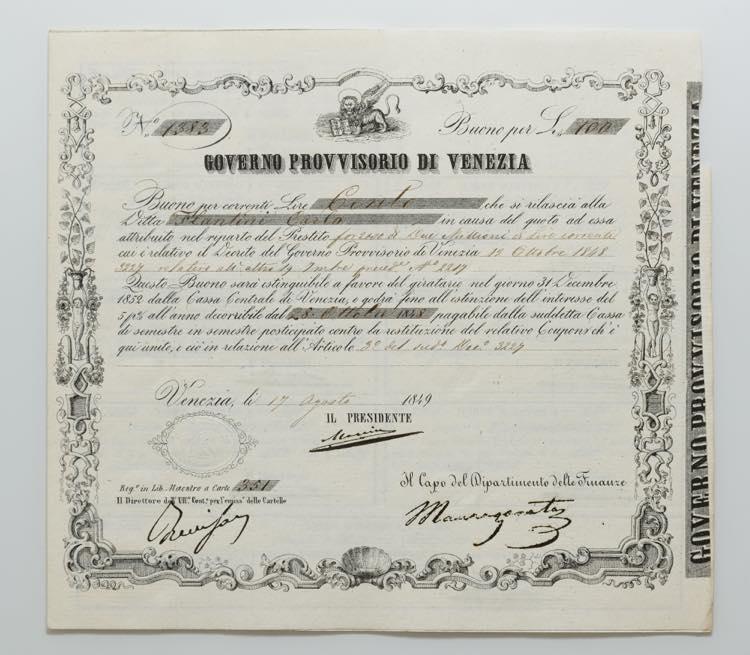 N.º 1383
Buono per L. 100
GOVERNO PROVVISORIO DI VENEZIA
Buono per correnti Lire Cento che si rilascia alla
Ditta Carlo in causa del quoto ad essa
attribuito nel riparto del Prestito forzoso di Due Milioni di Lire correnti
cui è relativo il Decreto del Governo Provvisorio di Venezia 12 Ottobre 1848
3227 relativo all' altro
Questo Buono sarà estinguibile a favore del giratario nel giorno 31 Decembre
1852 dalla Cassa Centrale di Venezia, e godrà fino all'estinzione dell'interesse del
5 p% all'anno decorribile dal 25 Ottobre 1848 pagabile dalla suddetta Cassa
di semestre in semestre posticipato contro la restituzione del relativo Coupons ch'è
qui unito, e ciò in relazione all'Articolo 3º del sudº Decº 3227
Venezia, li 17 Agosto 1849
IL PRESIDENTE
Manin
Reg.º in Lib. Maestro a Carte 351
Il Capo del Dipartimento delle Finanze
Il Direttore dell' Uff. Cent. per l'emiss.e delle Cartelle
GOVERNO PROVVISORIO DI VENEZIA